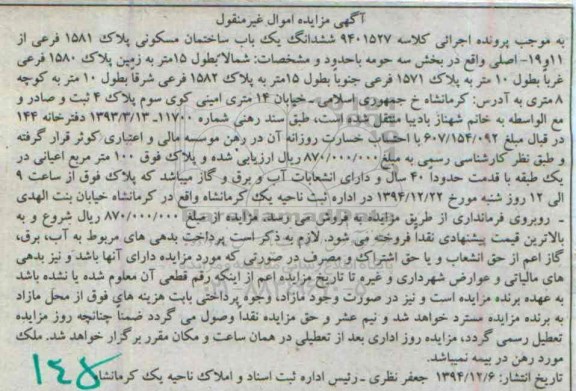 آگهی مزایده اموال غیرمنقول
به موجب پرونده اجرائی کلاسه ۹۴۰۱۵۲۷ ششدانگ یک باب ساختمان مسکونی پلاک ۱۵۸۱ فرعی از
۱۱و۱۹- اصلی واقع در بخش سه حومه باحدود و مشخصات: شمالا بطول ۱۵متر به زمین پلاک ۱۵۸۰ فرعی
غربا بطول ۱۰ متر به پلاک ۱۵۷۱ فرعی جنوبا بطول ۱۵متر به پلاک ۱۵۸۲ فرعی شرقا بطول ۱۰ متر به کوچه
۸متری به آدرس: کرمانشاه خ جمهوری اسلامی- خیابان ۱۴ متری امینی کوی سوم پلاک ۴ ثبت و صادر و
مع الواسطه به خانم شهناز بادبیا منتقل شده است، طبق سند رهنی شماره ۱۱۷۰۰- ۱۳۹۳/۳/۱۳ دفترخانه ۱۴۴
در قبال مبلغ ۶۰۷/۱۵۴/۰۹۲ با احتساب خسارت روزانه آن در رهن موسسه مالی و اعتباری کوثر قرار گرفته
و طبق نظر کارشناسی رسمی به مبلغ ۸۷۰/۰۰۰/۰۰۰ ریال ارزیابی شده و پلاک فوق ۱۰۰ متر مربع اعیانی در
یک طبقه با قدمت حدودا ۴۰ سال و دارای انشعابات آب و برق و گاز میباشد که پلاک فوق از ساعت ۹
الی ۱۲ روز شنبه مورخ ۱۳۹۴/۱۲/۲۲ در اداره ثبت ناحیه یک کرمانشاه واقع در کرمانشاه خیابان بنت الهدی
- روبروی فرمانداری از طریق مزایده به فروش می رسد. مزایده از مبلغ ۸۷۰/۰۰۰/۰۰۰ ریال شروع و به
بالاترین قیمت پیشنهادی نقدا فروخته می شود. لازم به ذکر است پرداخت بدهی های مربوط به آب، برق،
گاز اعم از حق انشعاب و یا حق اشتراک و مصرف در صورتی که مورد مزایده دارای آنها باشد و نیز بدهی
های مالیاتی و عوارض شهرداری و غیره تا تاریخ مزایده اعم از اینکه رقم قطعی آن معلوم شده یا نشده باشد
به عهده برنده مزایده است و نیز در صورت وجود مازاد، وجوه پرداختی بابت هزینه های فوق از محل مازاد
به برنده مزایده مسترد خواهد شد و نیم عشر و حق مزایده نقدا وصول می گردد ضمنا چنانچه روز مزایده
تعطیل رسمی گردد، مزایده روز اداری بعد از تعطیلی در همان ساعت و مکان مقرر برگزار خواهد شد. ملک
مورد رهن در بیمه نمیباشد.
تاریخ انتشار: ۱۳۹۴/۱۲/۶ جعفر نظری - رئیس اداره ثبت اسناد و املاک ناحیه یک کرمانشاه